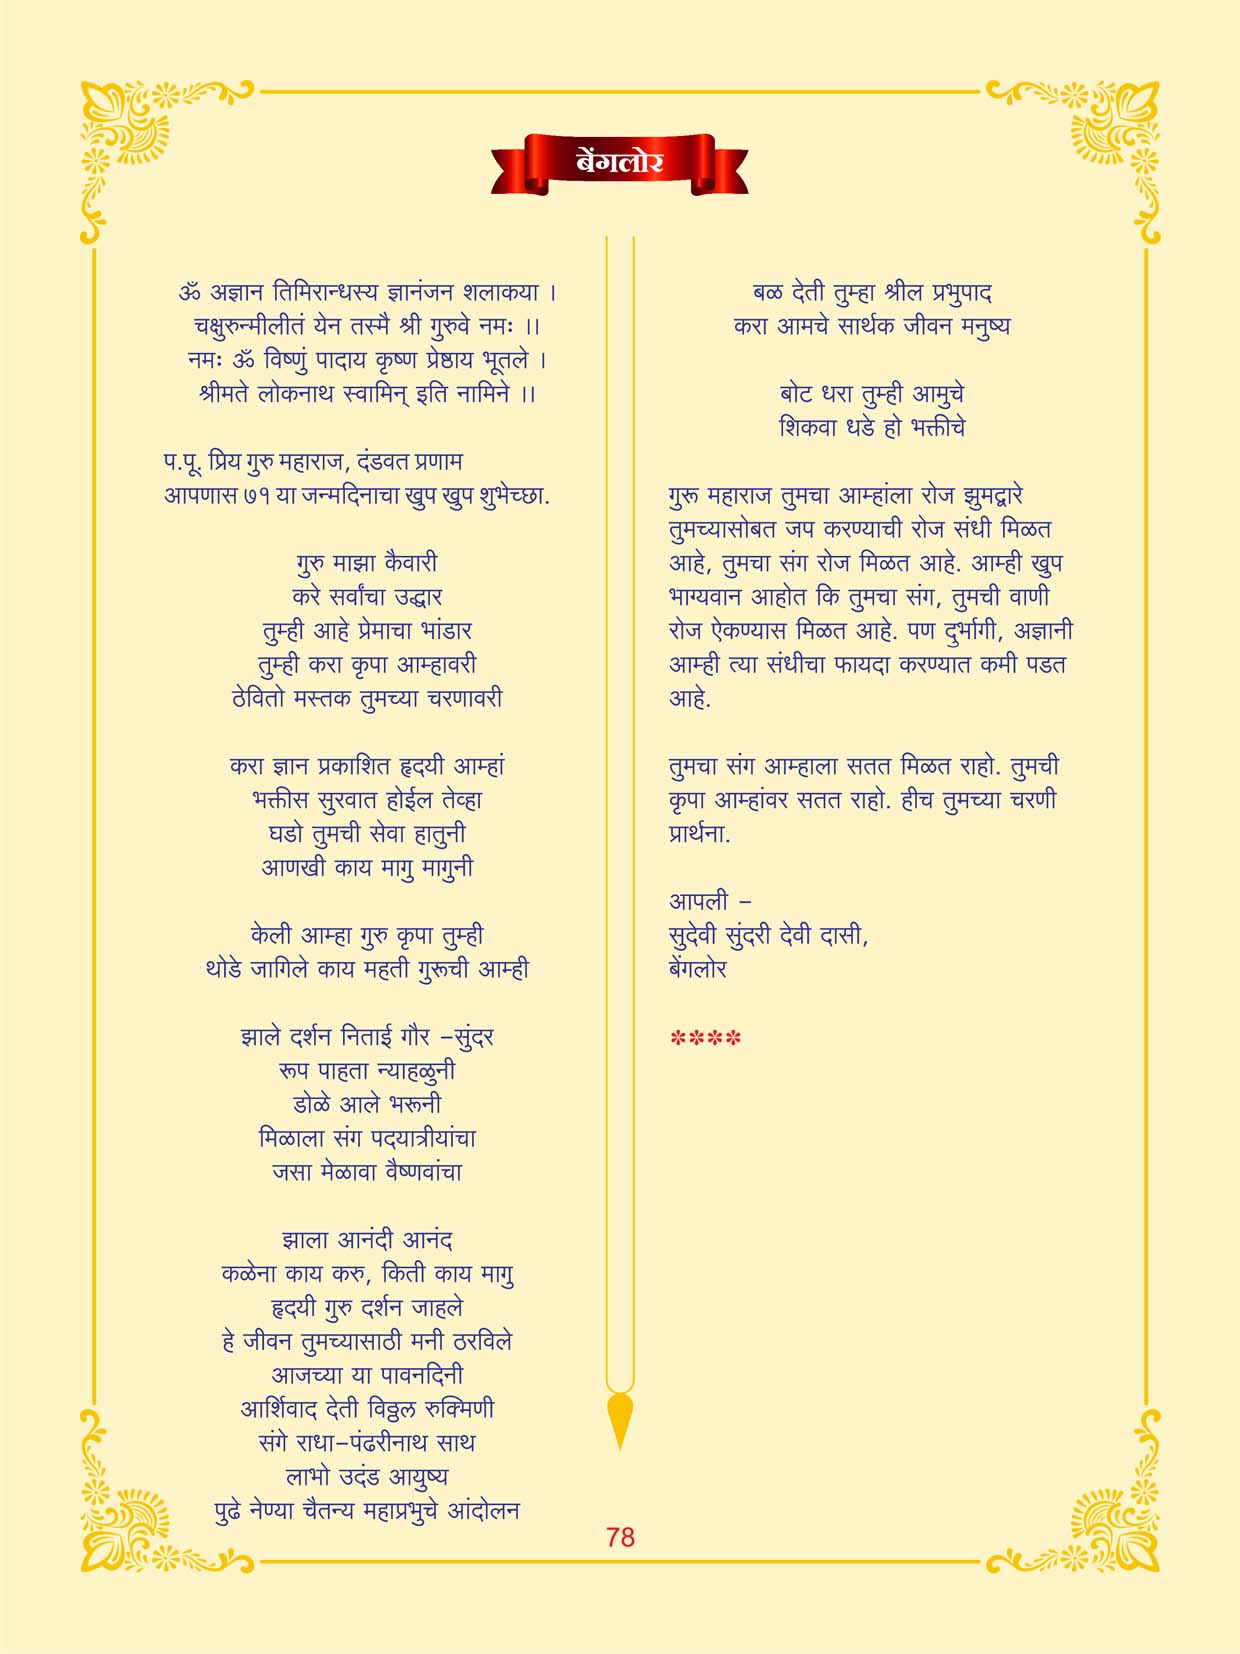 बेंगलोर
ॐ अज्ञान तिमिरान्धस्य ज्ञानंजन शलाकया ।
चक्षुरुन्मीलीतं येन तस्मै श्री गुरुवे नमः ।।
नमः ॐ विष्णुं पादाय कृष्ण प्रेष्ठाय भूतले ।
श्रीमते लोकनाथ स्वामिन् इति नामिने ।।
प.पू. प्रिय गुरु महाराज, दंडवत प्रणाम
आपणास ७१ या जन्मदिनाचा खुप खुप शुभेच्छा.
गुरु माझा कैवारी
करे सर्वांचा उद्धार
तुम्ही आहे प्रेमाचा भांडार
तुम्ही करा कृपा आम्हावरी
ठेवितो मस्तक तुमच्या चरणावरी
करा ज्ञान प्रकाशित हृदयी आम्हां
भक्तीस सुरवात होईल तेव्हा
घडो तुमची सेवा हातुनी
आणखी काय मागु मागुनी
केली आम्हा गुरु कृपा तुम्ही
थोडे जागिले काय महती गुरूची आम्ही
झाले दर्शन निताई गौर –सुंदर
रूप पाहता न्याहळुनी
डोळे आले भरूनी
मिळाला संग पदयात्रीयांचा
जसा मेळावा वैष्णवांचा
झाला आनंदी आनंद
कळेना काय करु, किती काय मागु
हृदयी गुरु दर्शन जाहले
हे जीवन तुमच्यासाठी मनी ठरविले
आजच्या या पावनदिनी
आर्शिवाद देती विठ्ठल रुक्मिणी
संगे राधा–पंढरीनाथ साथ
लाभो उदंड आयुष्य
पुढे नेण्या चैतन्य महाप्रभुचे आंदोलन
बळ देती तुम्हा श्रील प्रभुपाद
करा आमचे सार्थक जीवन मनुष्य
बोट धरा तुम्ही आमुचे
शिकवा धडे हो भक्तीचे
गुरू महाराज तुमचा आम्हांला रोज झुमद्वारे
तुमच्यासोबत जप करण्याची रोज संधी मिळत
आहे, तुमचा संग रोज मिळत आहे. आम्ही खुप
भाग्यवान आहोत कि तुमचा संग, तुमची वाणी
रोज ऐकण्यास मिळत आहे. पण दुर्भागी, अज्ञानी
आम्ही त्या संधीचा फायदा करण्यात कमी पडत
आहे.
तुमचा संग आम्हाला सतत मिळत राहो. तुमची
कृपा आम्हांवर सतत राहो. हीच तुमच्या चरणी
प्रार्थना.
आपली –
सुदेवी सुंदरी देवी दासी,
बेंगलोर
****
78